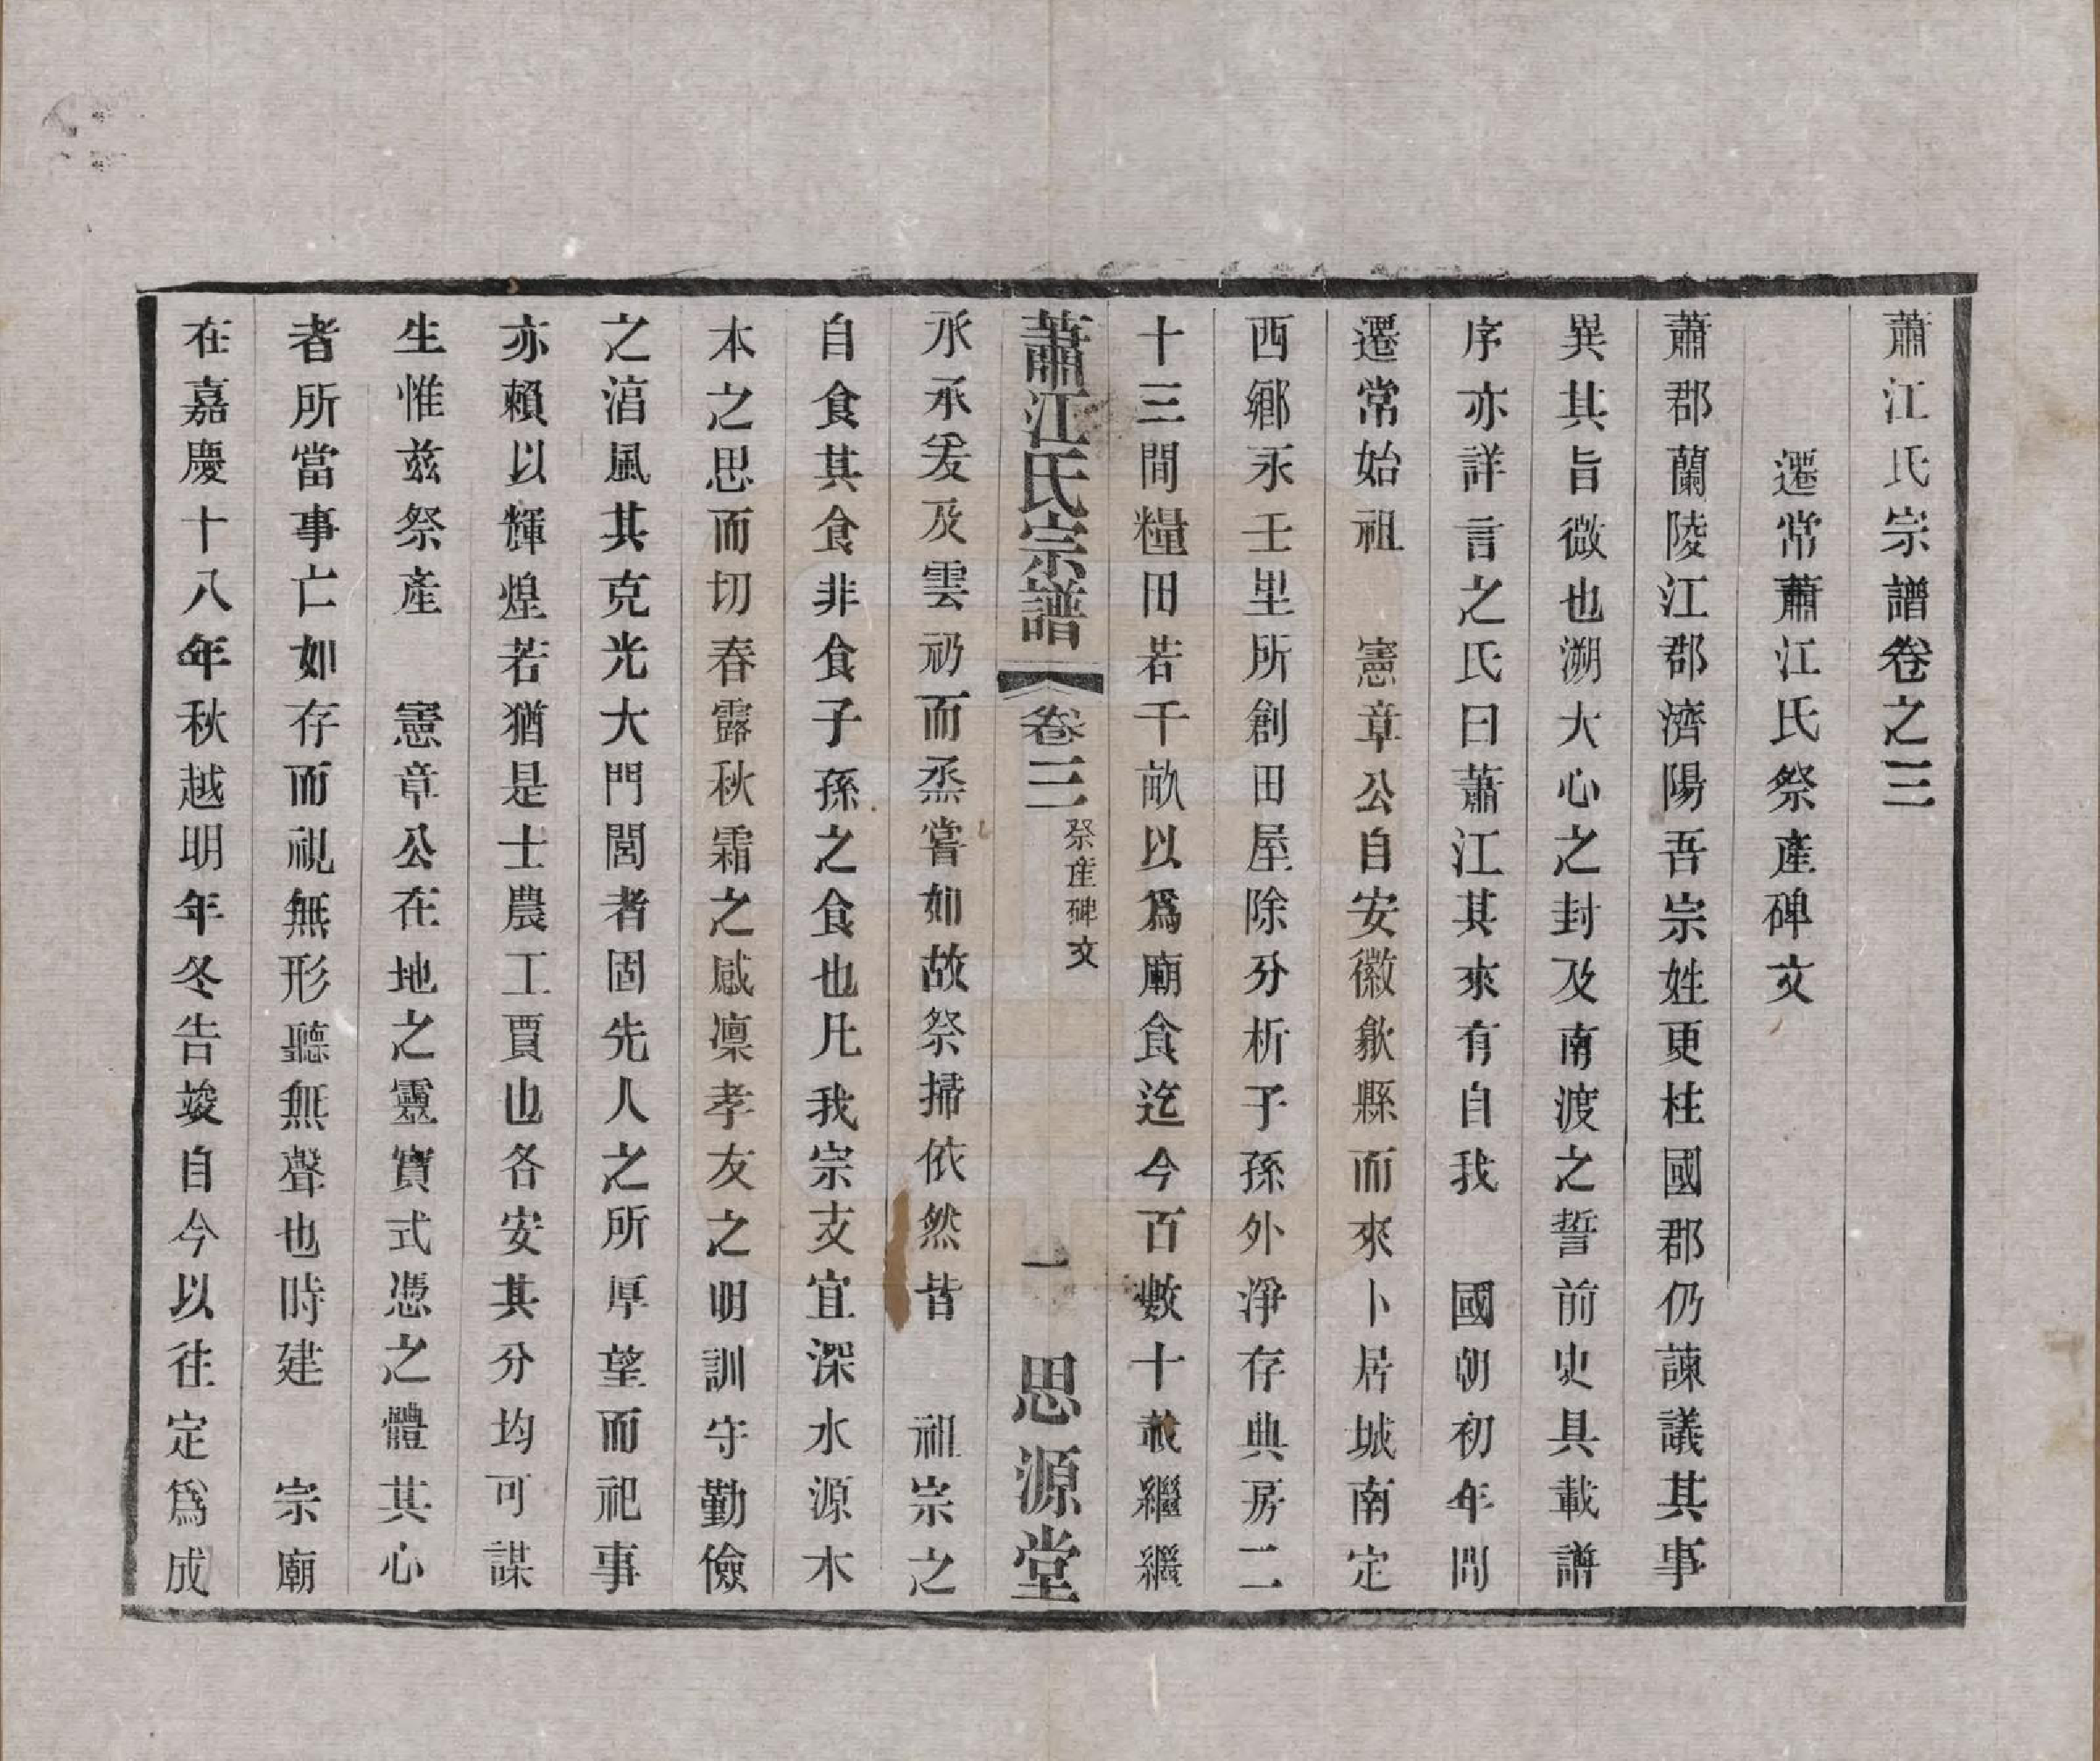 蕭江氏宗譜卷之三
遷常蕭江氏祭產碑文
蕭郡蘭陵江郡濟陽吾宗姓更柱國郡仍諫議其事
異其旨微也溯大心之封及南渡之誓前史具載譜
序亦詳言之氏曰蕭江其來有自我　國朝初年間
遷常始祖　憲章公自安徽歙縣而來卜居城南定
西鄉永壬里所創田屋除分析子孫外淨存典房二
十三間糧田若干畝以爲廟食迄今百數十載繼繼
蕭江氏宗譜 卷三 祭産碑文 一 思源堂
承承爰及雲礽而烝嘗如故祭掃依然昔　祖宗之
自食其食非食子孫之食也凡我宗支宜深水源木
本之思而切春露秋霜之感凜孝友之明訓守勤儉
之滀風其克光大門閭者固先人之所厚望而祀事
亦賴以輝煌若猶是士農工賈也各安其分均可謀
生惟兹祭產　憲章公在地之靈實式憑之體其心
者所當事亡如存而視無形聽無聲也時建　宗廟
在嘉慶十八年秋越明年冬告竣自今以往定爲成